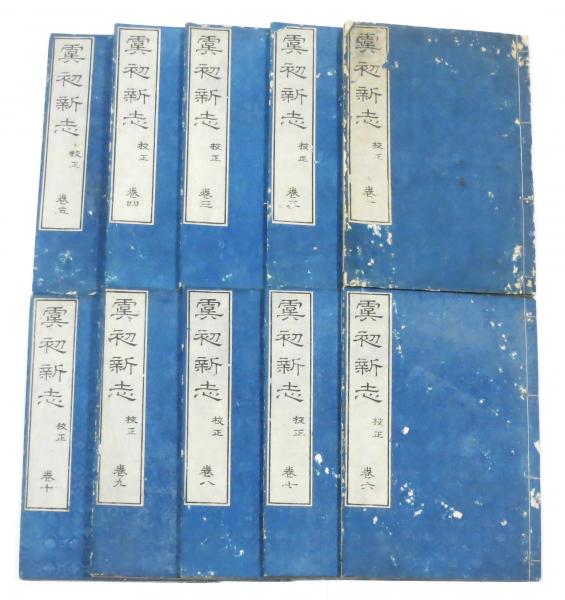 虞初新志 校正 卷一
虞初新志 校正 卷二
虞初新志 校正 卷三
虞初新志 校正 卷四
虞初新志 校正 卷五
虞初新志 校正 卷六
虞初新志 校正 卷七
虞初新志 校正 卷八
虞初新志 校正 卷九
虞初新志 校正 卷十